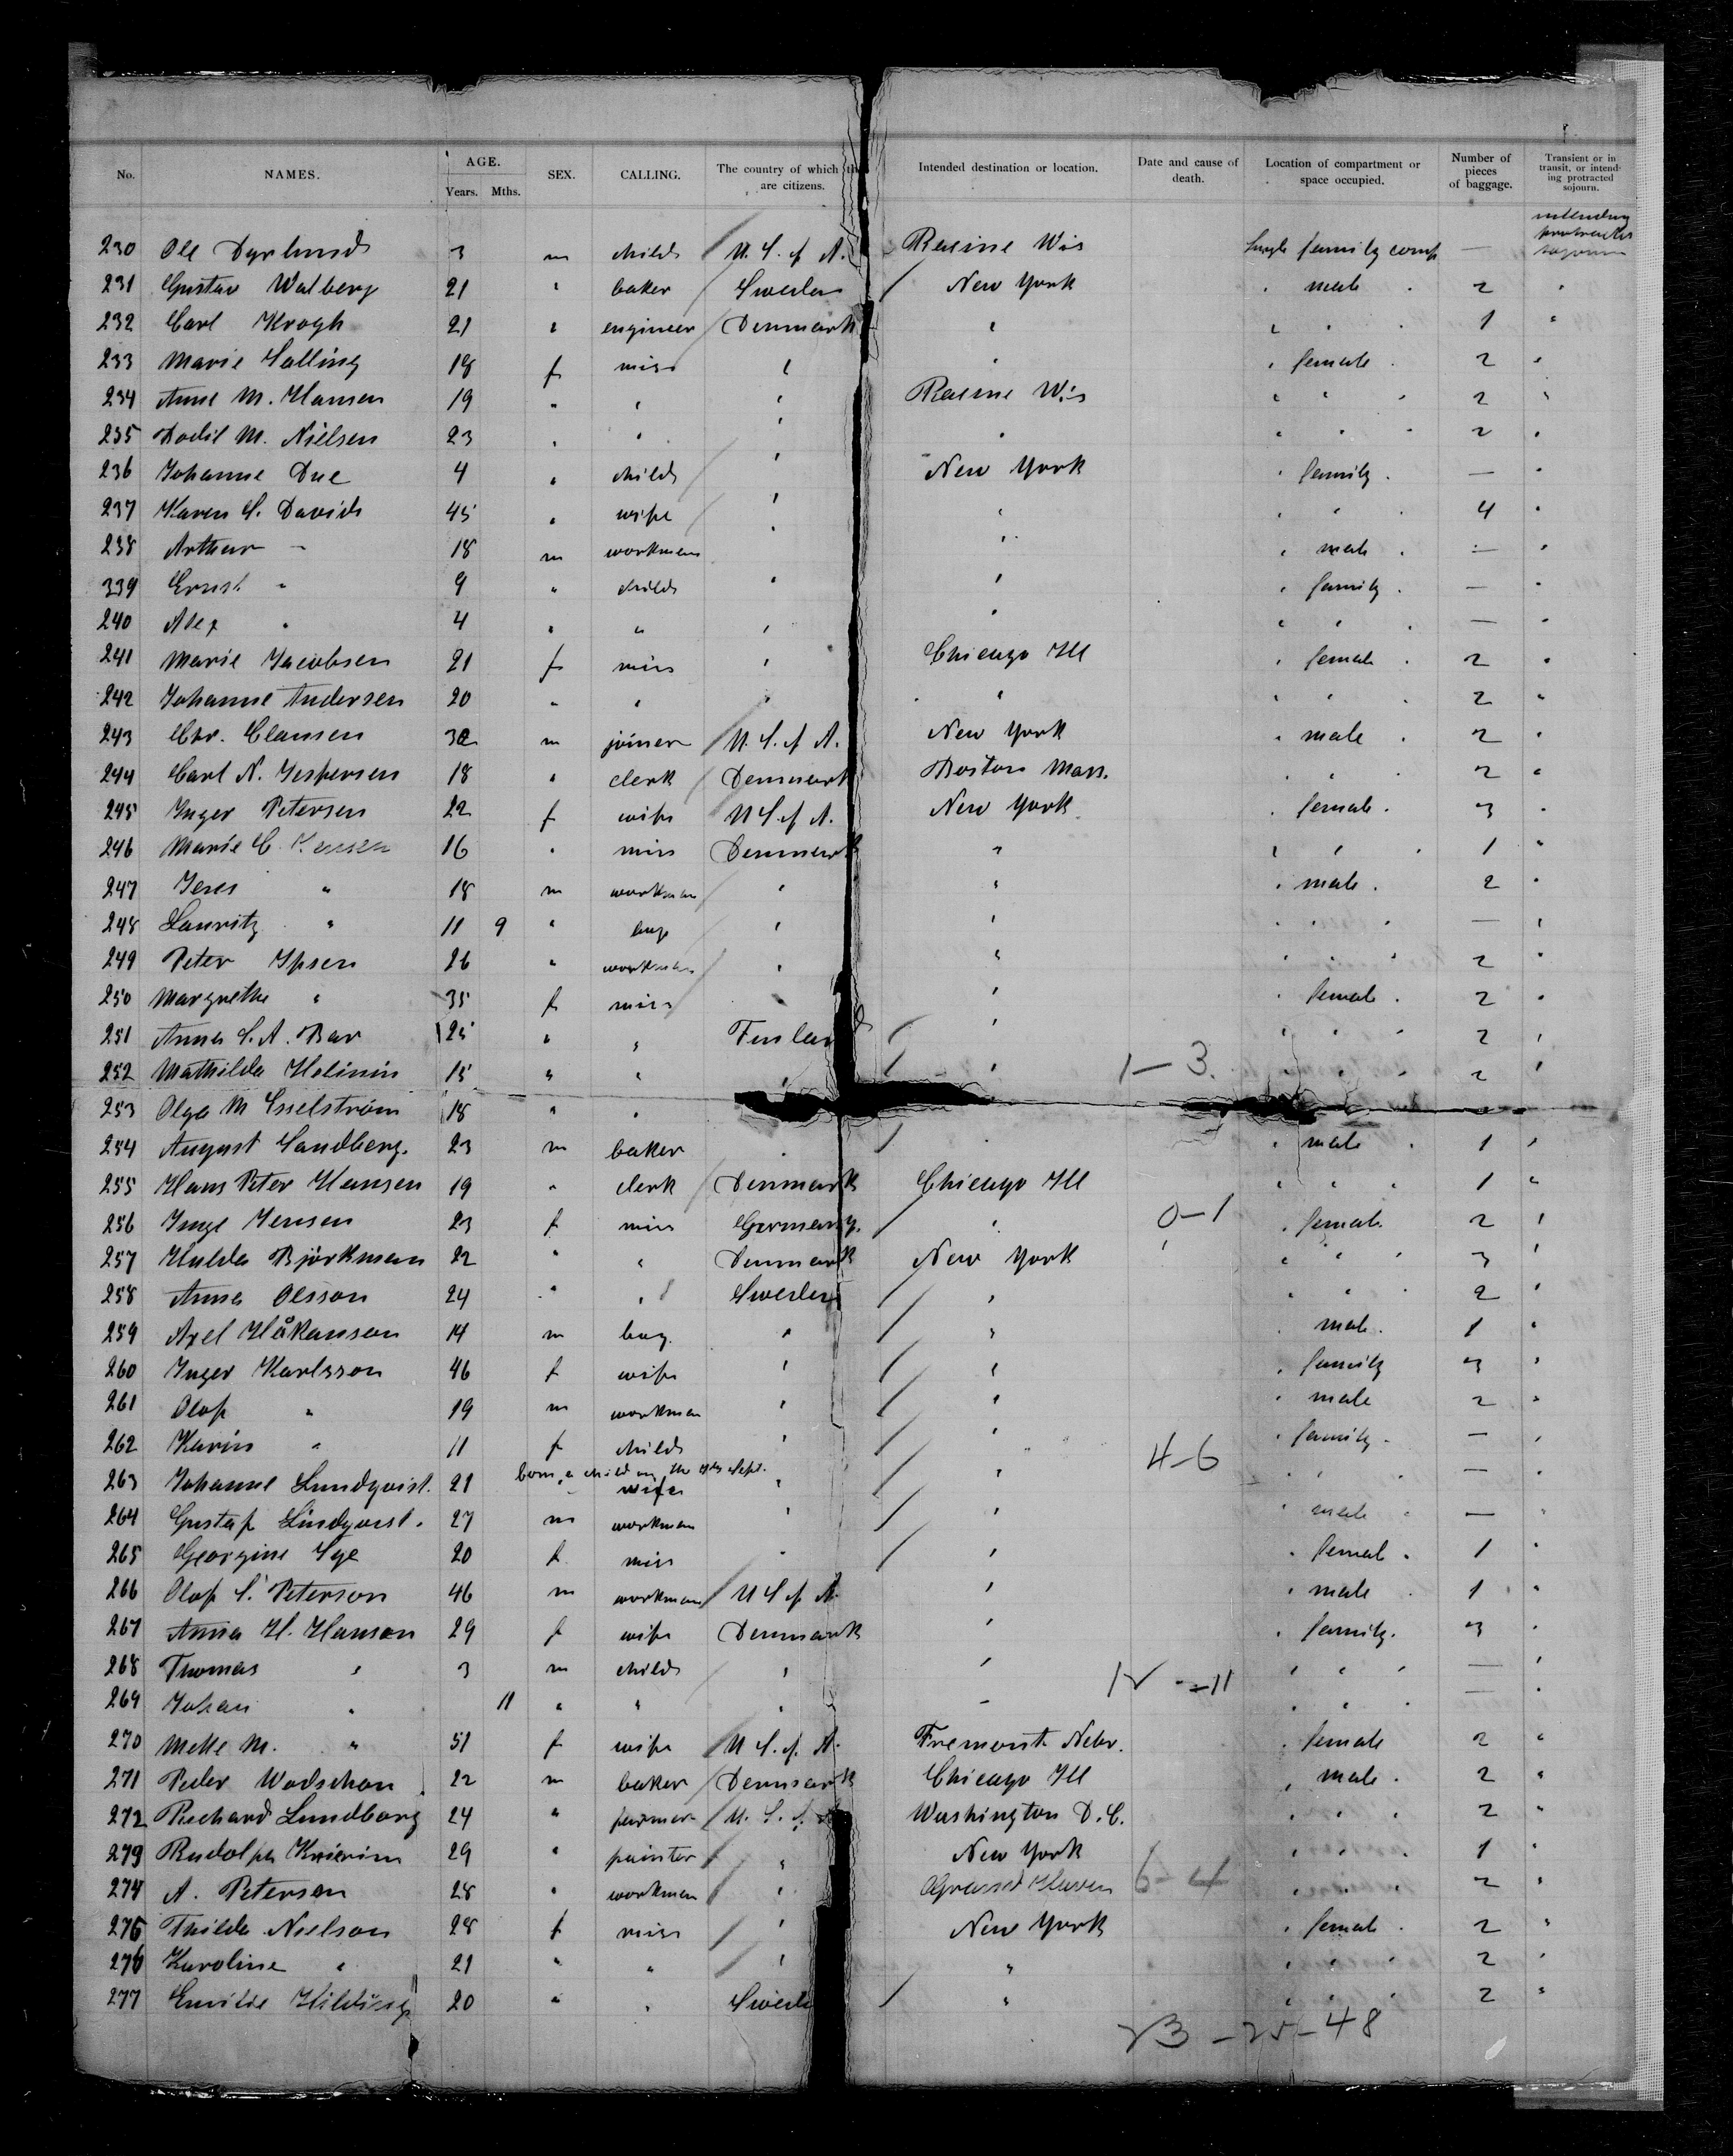 No. NAMES. AGE. Years. Mths. SEX. CALLING. The country of which they are citizens. Intended destination or location. Date and cause of death. Location of compartment or space occupied. Number of pieces of baggage. Transient or in transit, or intending protracted sojourn.
230 Ole Dyrlund 3 m child U. S. of A. Racine Wis Single family comp — intending protracted sojourn
231 Gustav Walberg 21 " baker Sweden New York " male " 2 "
232 Carl Krogh 21 " engineer Denmark " " " " 1 "
233 Marie Salling 18 f miss " " " female " 2 "
234 Anne M. Hansen 19 " " " Racine Wis " " " 2 "
235 Bodil M. Nielsen 23 " " " " " " " 2 "
236 Johanne Due 4 " child " New York " family " — "
237 Karen S. Davids 45 " wife " " " " " 4 "
238 Arthur " 18 m workman " " " male " — "
339 Ernst " 9 " child " " " family " — "
240 Alex " 4 " " " " " " " — "
241 Marie Jacobsen 21 f miss " Chicago Ill " female " 2 "
242 Johanne Andersen 20 " " " " " " " 2 "
243 Chr. Clausen 32 m joiner U. S. of A. New York " male " 2 "
244 Carl N. Jespersen 18 " clerk Denmark Boston Mass. " " " 2 "
245 Inger Petersen 22 f wife U S. of A. New York " female " 3 "
246 Marie C. Jensen 16 " miss Denmark " " " " 1 "
247 Jens " 18 m workman " " " male " 2 "
248 Lauritz " 11 9 " boy " " " " " — "
249 Peter Ipsen 26 " workman " " " " " 2 "
250 Margrethe " 35 f miss " " " female " 2 "
251 Anna S. A. Bar 25 " " Finland " " " " 2 "
252 Mathilda Helinin 15 " " " " 1–3. " " " 2 "
253 Olga M Esselström 18 " "
254 August Sandberg. 23 m baker " " " male " 1 "
255 Hans Peter Hansen 19 " clerk Denmark Chicago Ill " " " 1 "
256 Inge Jensen 23 f miss Germany. " 0–1 " female " 2 "
257 Hulda Björkman 22 " " Denmark New York " " " 3 "
258 Anna Olsson 24 " " Sweden " " " " 2 "
259 Axel Håkanson 14 m boy. " " " male " 1 "
260 Inger Karlsson 46 f wife " " " family 3 "
261 Olof " 19 m workman " " " male 2 "
262 Karin " 11 f child " " " family " — "
263 Johanne Lundqvist. 21 born a child on the Sept. wife " " 4–6 " " " — "
264 Gustaf Lindqvist. 27 m workman " " " male " — "
265 Georgine Sye 20 f miss " " " female " 1 "
266 Olof S. Peterson 46 m workman U S of A. " " male " 1 "
267 Anna H. Hanson 29 f wife Denmark " " family. 3 "
268 Thomas " 3 m child " " " " " — "
269 Johan " 11 " " " " " " " — "
270 Mette M. " 51 f wife U S. of A. Fremont Nebr. " female 2 "
271 Peder Wodschou 22 m baker Denmark Chicago Ill " male " 2 "
272 Richard Lundborg 24 " farmer U. S. of A Washington D. C. " " " 2 "
279 Rudolph 29 " painter " New York " " " 1 "
274 A. Petersen 28 " workman " Grand Haven 6–4 " " " 2 "
275 Thilda Nielson 28 f miss " New York " female " 2 "
276 Karoline " 21 " " " " " " " 2 "
277 Emilie 20 " " Sweden " " " " 2 "
23 – 25 – 48